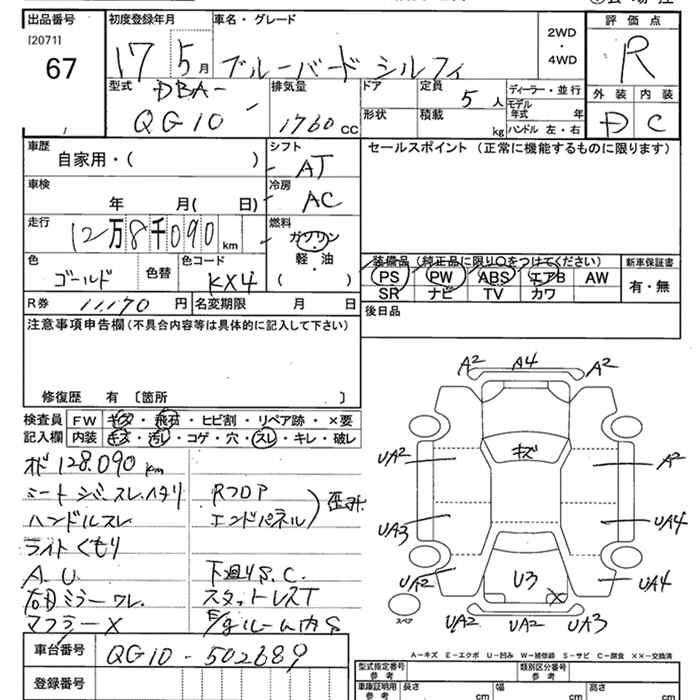 出品番号 初度登録年月 車名・グレード 評価点
[2071]
67
17 5月 ブルーバードシルフィ 2WD・4WD R
外装 内装
D C
型式 DBA- 排気量 ドア 定員 5人 ディーラー・並行
QG10 1760cc 形状 積載 kg モデル年式 年
ハンドル 左・右
車歴 シフト セールスポイント (正常に機能するものに限ります)
自家用・( ) AT
車検 冷房
年 月( 日) AC
走行 燃料
12万8千090km ガソリン・軽・油( )
色 ゴールド 色替 色コード KX4
装備品 (純正品に限り○をつけてください) 新車保証書
PS PW ABS エアB AW 有・無
SR ナビ TV カワ
R券 11,170円 名変期限 月 日
後日品
注意事項申告欄(不具合内容等は具体的に記入して下さい)
修復歴 有 〔箇所 〕
検査員 FW キズ・飛石・ヒビ割・リペア跡・×要
記入欄 内装 キズ・汚レ・コゲ・穴・スレ・キレ・破レ
オド 128.090km
シートシワ.スレ.ヘタリ Rフロア
ハンドルスレ エンドパネル
ライトくもり
A.U. 下廻りS.C.
右目ミラーワレ. スタットレスT
マフラーX E/gルーム内S
A2 A4 A2
キズ
UA2 A2
UA3 UA4
UA2 U3 X UA4
スペア UA2 UA2 UA3
A-キズ E-エクボ U-凹み W-補修跡 S-サビ C-腐食 ××-交換済
車台番号 QG10-502689
登録番号
型式指定番号 参考 類別区分番号 参考
車庫証明用 参考 長さ cm 幅 cm 高さ cm